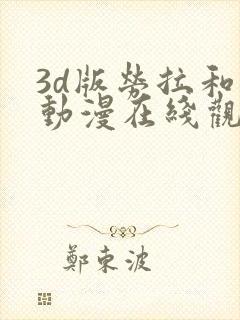 3d版勞拉和
動漫在綫觀
鄭東波